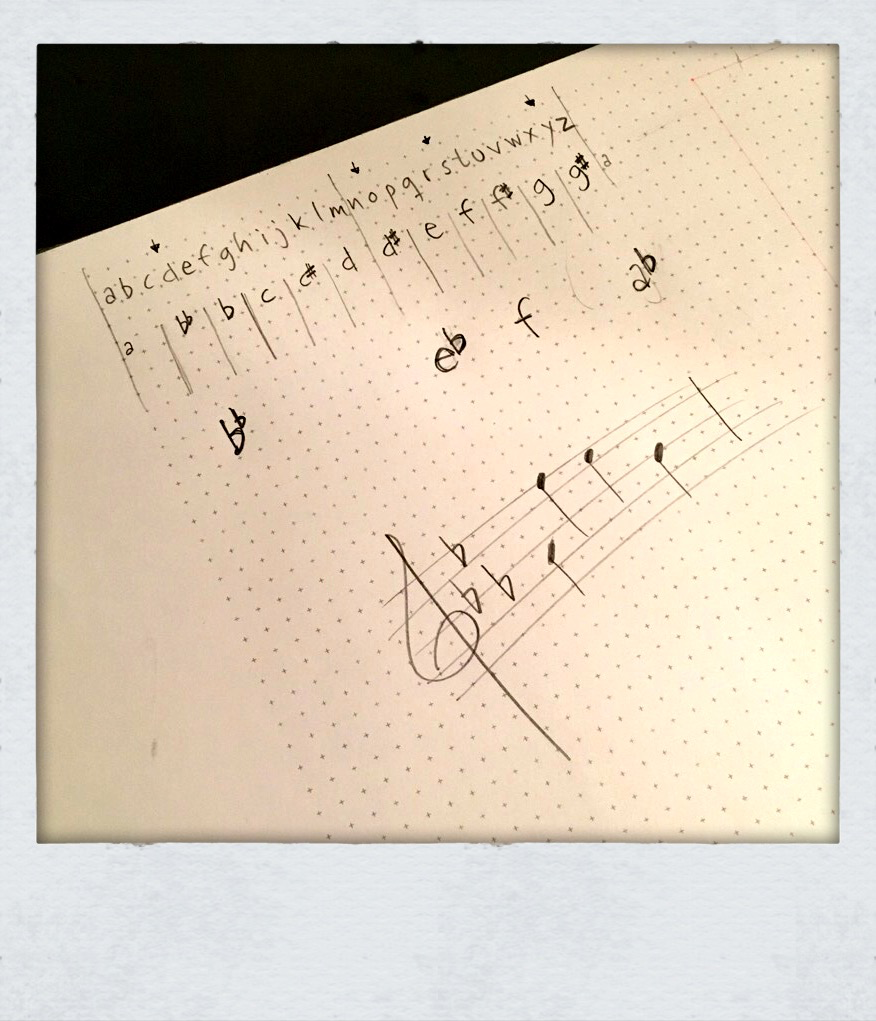 abcdefghijklmnopqrstuvwxyz
a b♭ b c c# d d# e f f# g g# a
b♭ e♭ f a♭
♭
♭ ♭